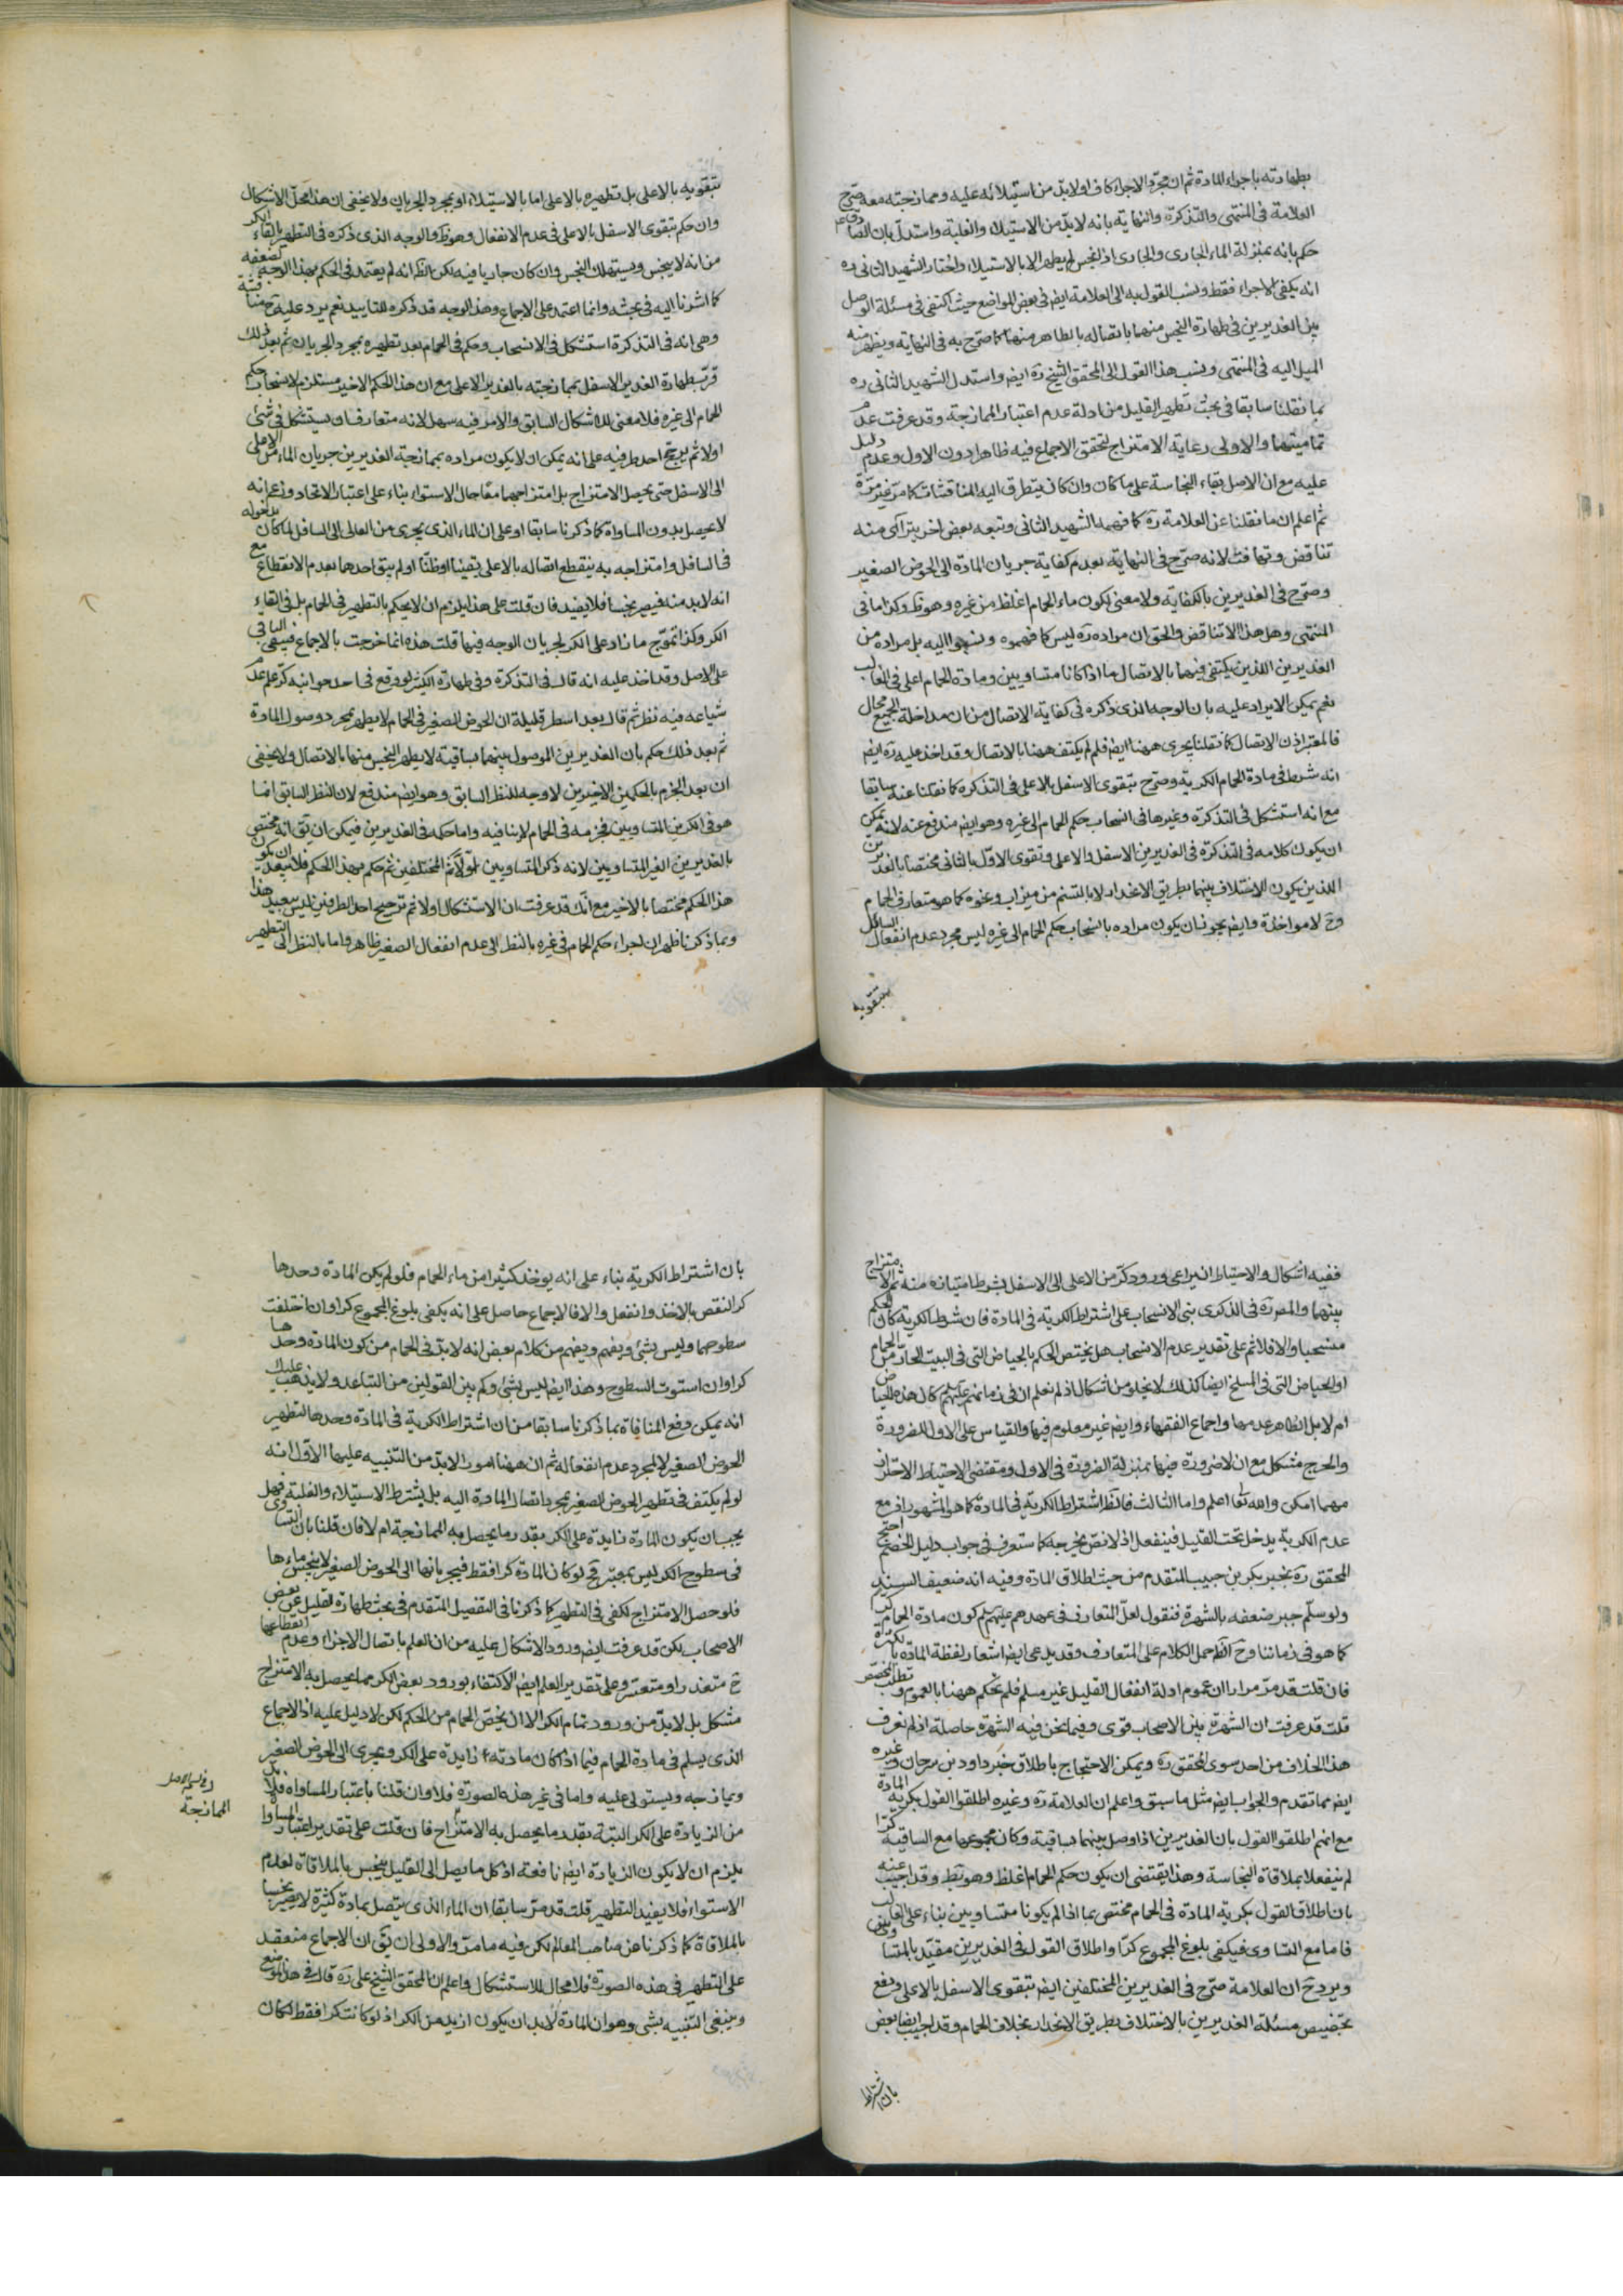 بطهارته باجراء المادة ثم ان مجرد الاجراء كاف او لا بد من استيلائه عليه وممازجته معه صرح
العلامة في المنتهى والتذكرة والنهاية بانه لا بد من الاستيلاء والغلبة واستدل بان الصادق ع
حكم بانه بمنزلة الماء الجاري والجاري اذا نجس لم يطهر الا بالاستيلاء واختار الشهيد الثاني ره
انه يكفي الاجراء فقط ونسب القول به الى العلامة ايض في بعض المواضع حيث اكتفى في مسئلة الوصل
بين الغديرين في طهارة النجس منهما باتصاله بالطاهر منهما كما صرح به في النهاية ويظهر منه
الميل اليه في المنتهى ونسب هذا القول الى المحقق الشيخ ره ايض واستدل الشهيد الثاني ره
بما نقلنا سابقا في بحث تطهير القليل من ادلة عدم اعتبار الممازجة وقد عرفت عدم
تماميتها والاولى رعاية الامتزاج لتحقق الاجماع فيه ظاهرا دون الاول وعدم دليل
عليه مع ان الاصل بقاء النجاسة على ما كان وان كان يتطرق اليه المناقشات كما مر غير مرة
ثم اعلم ان ما نقلنا عن العلامة ره كما فهمه الشهيد الثاني وتبعه بعض اخر يترآى منه
تناقض وتهافت لانه صرح في النهاية بعدم كفاية جريان المادة الى الحوض الصغير
وصرح في الغديرين بالكفاية ولا معنى لكون ماء الحمام اغلظ من غيره وهو ظ وكذا ما في
المنتهى وهل هذا الا تناقض والحق ان مراده ره ليس كما فهموه ونسبوا اليه بل مراده من
الغديرين اللذين يكتفى فيهما بالاتصال ما اذا كانا متساويين ومادة الحمام اعلى في الغالب
نعم يمكن الايراد عليه بان الوجه الذي ذكره في كفاية الاتصال من ان مداخلة الجميع محال
فالمعتبر اذن الاتصال كما نقلنا يجري ههنا ايض فلم لم يكتف ههنا بالاتصال وقد اخذ عليه ره ايض
انه شرط في مادة الحمام الكرية وصرح بتقوى الاسفل بالاعلى في التذكرة كما نقلنا عنه سابقا
مع انه استشكل في التذكرة وغيرها في انسحاب حكم الحمام الى غيره وهو ايض مندفع عنه لانه يمكن
ان يكون كلامه في التذكرة في الغديرين الاسفل والاعلى وتقوى الاول بالثاني مختصا بالغديرين
اللذين يكون الاختلاف بينهما بطريق الانحدار لا بالتسنم من ميزاب ونحوه كما هو متعارف الحمام
وح لا مؤاخذة وايض يجوز ان يكون مراده بانسحاب حكم الحمام الى غيره ليس مجرد عدم انفعال السافل
بتقويه
بتقويه بالاعلى بل تطهيره بالاعلى اما بالاستيلاء او بمجرد الجريان ولا يخفى ان هذا محل الاشكال
وان حكم بتقوى الاسفل بالاعلى في عدم الانفعال وهو ظ والوجه الذي ذكره في التطهير بالقاء الكر
من انه لا ينجس ويستهلك النجس وان كان جاريا فيه لكن الظ انه لم يعتمد في الحكم بهذا الوجه لضعفه
كما اشرنا اليه في بحثه وانما اعتمد على الاجماع وهذا الوجه قد ذكره للتاييد نعم يرد عليه ح مناقشة
وهي انه في التذكرة استشكل في الانسحاب وحكم في الحمام بعد تطهيره بمجرد الجريان ثم بعد ذلك
قرر بطهارة الغدير الاسفل بممازجته بالغدير الاعلى مع ان هذا الحكم الاخير مستلزم لانسحاب حكم
الحمام الى غيره فلا معنى للاشكال السابق والامر فيه سهل لانه متعارف ان يستشكل في شئ
اولا ثم يرجح احد طرفيه على انه يمكن ان لا يكون مراده بممازجة الغديرين جريان الماء من الاعلى
الى الاسفل حتى يحصل الامتزاج بل امتزاجهما معا حال الاستواء بناء على اعتبار الاتحاد وزعم انه
لا يحصل بدون المساواة كما ذكرنا سابقا او على ان الماء الذي يجري من العالي الى السافل لمكان بدخوله
في السافل وامتزاجه به ينقطع اتصاله بالاعلى يقينا او ظنا او لم يبق احدهما بعدم الانقطاع مع
انه لا بد منه فيصير نجسا فلا يفيد فان قلت على هذا يلزم ان لا يحكم بالتطهير في الحمام بل في القاء
الكر وكذا تموج ما زاد على الكر لجريان الوجه فيها قلت هذه انما خرجت بالاجماع فيبقى الباقي
على الاصل وقد اخذ عليه انه قال في التذكرة وفي طهارة الكثير لو وقع في احد جوانبه كر علم عدم
شياعه فيه نظر ثم قال بعد اسطر قليلة ان الحوض الصغير في الحمام لا يطهر بمجرد وصول المادة
ثم بعد ذلك حكم بان الغديرين الموصول بينهما بساقية لا يطهر النجس منهما بالاتصال ولا يخفى
ان بعد الجزم بالحكمين الاخيرين لا وجه للنظر السابق وهو ايض مندفع لان النظر السابق انما
هو في الكرين المتساويين فجزمه في الحمام لا ينافيه واما حكمه في الغديرين فيمكن ان يق انه مختص
بالغديرين الغير المتساويين لانه ذكر المتساويين اولا ثم المختلفين ثم حكم بهذا الحكم فلا يبعد ان يكون
هذا الحكم مختصا بالاخير مع انك قد عرفت ان الاستشكال اولا ثم ترجيح احد الطرفين ليس ببعيد هذا
وبما ذكرنا ظهر ان اجراء حكم الحمام في غيره بالنظر الى عدم انفعال الصغير ظاهر واما بالنظر الى التطهير
ففيه اشكال والاحتياط ان يراعى ورود كر من الاعلى الى الاسفل بشرط امتيازه منه ثم الامتزاج
بينهما والمص ره في الذكرى بنى الانسحاب على اشتراط الكرية في المادة فان شرط الكرية كان الحكم
منسحبا والا فلا ثم على تقدير عدم الانسحاب هل يختص الحكم بالحياض التي في البيت الحار من الحمام
او الحياض التي في المسلخ ايضا كذلك لا يخلو من اشكال اذ لم نعلم ان في زمانهم عليهم السلم كان هذه الحياض
ام لا بل الظاهر عدمها واجماع الفقهاء وايض غير معلوم فيها والقياس على الاول للضرورة
والحرج مشكل مع ان لا ضرورة فيها بمنزلة الضرورة في الاول ومقتضى الاحتياط الاحتراز
مهما امكن والله تعا اعلم واما الثالث فالظ اشتراط الكرية في المادة كما هو المشهور اذ مع
عدم الكرية يدخل تحت القليل فينفعل اذ لا نص يخرجه كما ستعرف في جواب دليل الخصم احتج
المحقق ره بخبر بكر بن حبيب المتقدم من حيث اطلاق المادة وفيه انه ضعيف السند
ولو سلم جبر ضعفه بالشهرة فنقول لعل المتعارف في عهدهم عليهم السلم كون مادة الحمام كرا
كما هو في زماننا وح الظ حمل الكلام على المتعارف وقد يدعى ايض اشعار لفظة المادة بالكثرة
فان قلت قد مر مرارا ان عموم ادلة انفعال القليل غير مسلم فلم تحكم ههنا بالعموم وتطلب المخصص
قلت قد عرفت ان الشهرة بين الاصحاب قوى وفيما نحن فيه الشهرة حاصلة اذ لم نعرف
هذا الخلاف من احد سوى المحقق ره ويمكن الاحتجاج باطلاق خبر داود بن سرحان وغيره
ايض مما تقدم والجواب ايض مثل ما سبق واعلم ان العلامة ره وغيره اطلقوا القول بكرية المادة
مع انهم اطلقوا القول بان الغديرين اذا وصل بينهما بساقية وكان مجموعهما مع الساقية كرا
لم ينفعلا بملاقاة النجاسة وهذا يقتضي ان يكون حكم الحمام اغلظ وهو بط وقد اجيب عنه
بان اطلاق القول بكرية المادة في الحمام مختص بما اذا لم يكونا متساويين بناء على الغالب
فاما مع التساوي فيكفي بلوغ المجموع كرا واطلاق القول في الغديرين مقيد بالمتساويين
ويرد ح ان العلامة صرح في الغديرين المختلفين ايض بتقوى الاسفل بالاعلى ودفع
بتخصيص مسئلة الغديرين بالاختلاف بطريق الانحدار بخلاف الحمام وقد اجيب ايضا بعض
بان اشتراط
بان اشتراط الكرية بناء على انه يوخذ كثيرا من ماء الحمام فلو لم يكن المادة وحدها
كرا لنقص بالاخذ وانفعل والا فالاجماع حاصل على انه يكفي بلوغ المجموع كرا وان اختلفت
سطوحهما وليس بشئ ويفهم من كلام بعض انه لا بد في الحمام من كون المادة وحدها
كرا وان استوت السطوح وهذا ايض ليس بشئ وكم بين القولين من التباعد ولا يذهب عليك
انه يمكن رفع المنافاة بما ذكرنا سابقا من ان اشتراط الكرية في المادة وحدها لتطهير
الحوض الصغير لا لمجرد عدم انفعاله ثم ان ههنا امور لا بد من التنبيه عليها الاول انه
لو لم يكتف في تطهير الحوض الصغير بمجرد اتصال المادة اليه بل يشترط الاستيلاء والغلبة فهل
يجب ان يكون المادة زايدة على الكر بقدر ما يحصل به الممازجة ام لا فان قلنا بان التساوي
في سطوح الكر ليس بمعتبر فح لو كان المادة كرا فقط فبجريانها الى الحوض الصغير لا ينجس ماءها
فلو حصل الامتزاج لكفى في التطهير كما ذكرنا في التفصيل المتقدم في بحث طهارة القليل عن بعض
الاصحاب لكن قد عرفت ايض ورود الاشكال عليه من ان العلم باتصال الاجزاء وعدم انقطاعها
ح متعذر او متعسر وعلى تقدير العلم ايض الاكتفاء بورود بعض الكر مما يحصل به الامتزاج
مشكل بل لا بد من ورود تمام الكر الا ان يخص الحمام من الحكم لكن لا دليل عليه اذ الاجماع
الذي يسلم في مادة الحمام فيما اذا كان مادته زايدة على الكر ويجري الى الحوض الصغير
ويمازجه ويستولى عليه واما في غير هذه الصورة فلا وان قلنا باعتبار المساواة فلا بد
من الزيادة على الكر البتة بقدر ما يحصل به الامتزاج فان قلت على تقدير اعتبار المساواة
يلزم ان لا يكون الزيادة ايض نافعة اذ كل ما يصل الى القليل ينجس بالملاقاة لعدم
الاستواء فلا يفيد التطهير قلت قد مر سابقا ان الماء الذي يتصل بمادة كثيرة لا يصير نجسا
بالملاقاة كما ذكرنا عن صاحب المعالم لكن فيه ما مر والاولى ان يق ان الاجماع منعقد
على التطهير في هذه الصورة فلا مجال للاستشكال واعلم ان المحقق الشيخ علي ره قال في هذا الموضع
وينبغي التنبيه بشئ وهو ان المادة لا بد ان يكون ازيد من الكر اذ لو كانت كرا فقط لكان
الممازجة